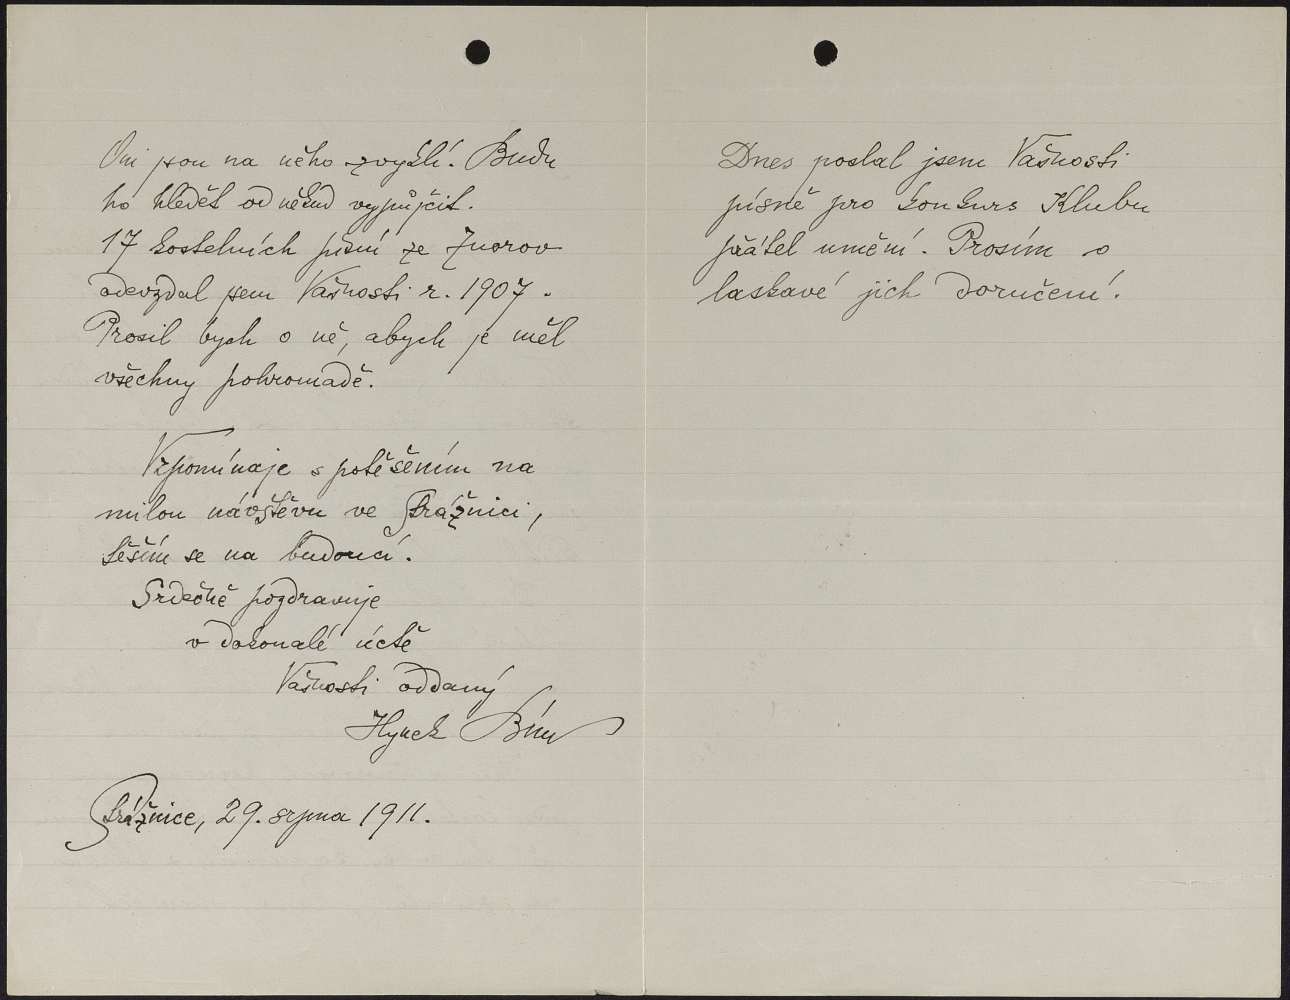 Oni jsou na něho zvyklí. Budu
ho hledět od někud vypůjčit.
17 kostelních písní ze Znorov
odevzdal jsem Vašnosti r. 1907.
Prosil bych o ně, abych je měl
všechny pohromadě.
Vzpomínaje s potěšením na
milou návštěvu ve Strážnici,
těším se na budoucí.
Srdečně pozdravuje
v dokonalé úctě
Vašnosti oddaný
Hynek Bím
Strážnice, 29. srpna 1911.
Dnes poslal jsem Vašnosti
písně pro konkurs Klubu
přátel umění. Prosím o
laskavé jich doručení.